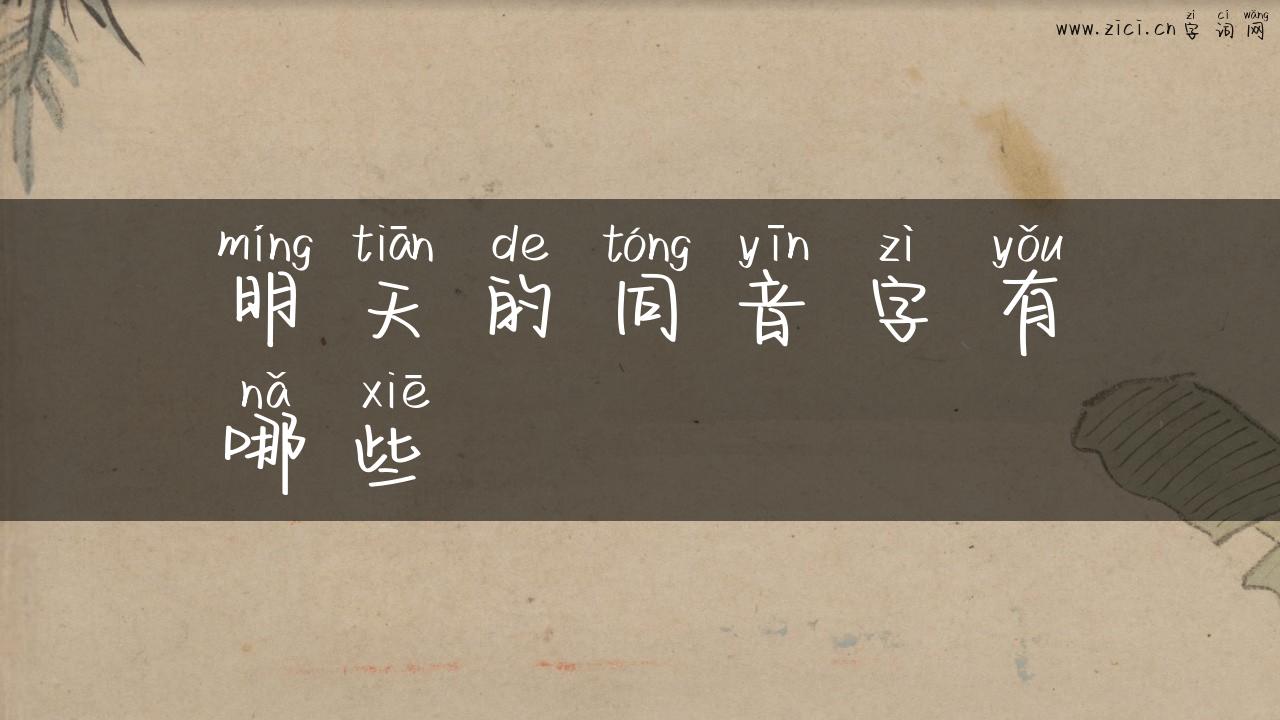 zì cí wǎng
www.zici.cn 字词网
míng tiān de tóng yīn zì yǒu
明天的同音字有
nǎ xiē
哪些